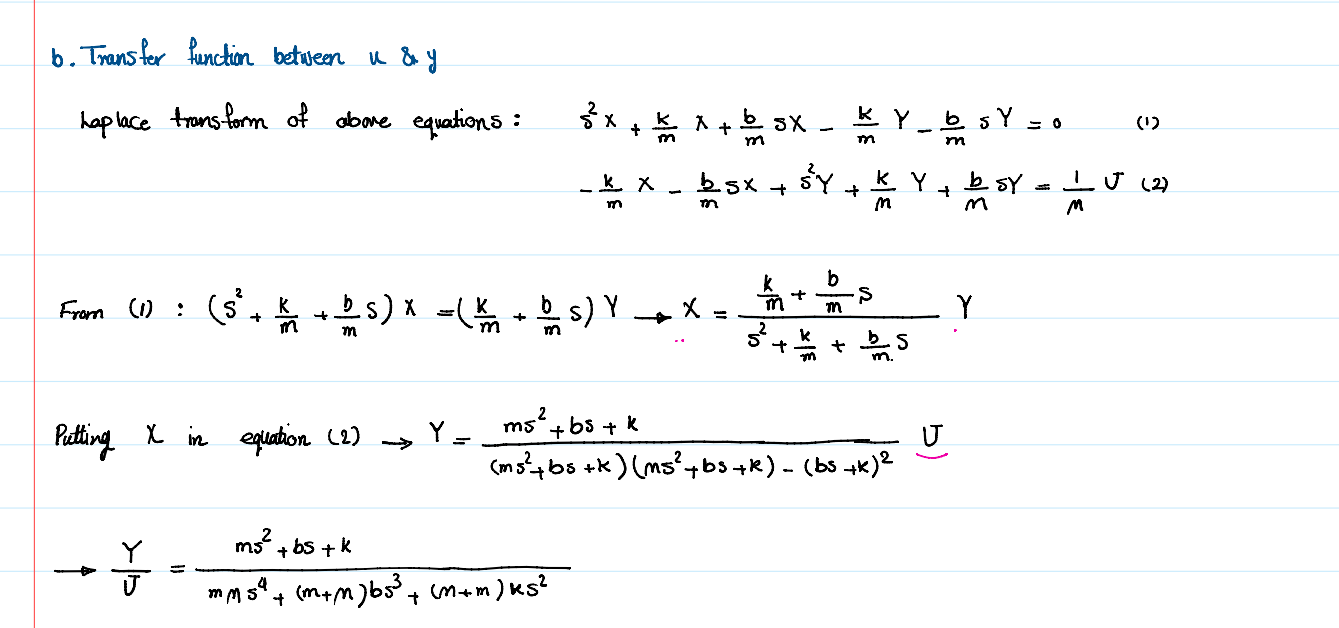 b. Transfer function between u & y
Laplace transform of above equations : s² X + k/m X + b/m sX - k/m Y - b/m sY = 0 (1)
- k/m X - b/m sX + s²Y + k/M Y + b/M sY = 1/M U (2)
From (1) : (s² + k/m + b/m s) X = (k/m + b/m s) Y → X = (k/m + b/m s)/(s² + k/m + b/m s) Y
Putting X in equation (2) → Y = (ms² + bs + k)/((ms² + bs + k)(Ms² + bs + k) - (bs + k)²) U
→ Y/U = (ms² + bs + k)/(mM s⁴ + (m+M)bs³ + (M+m)ks²)